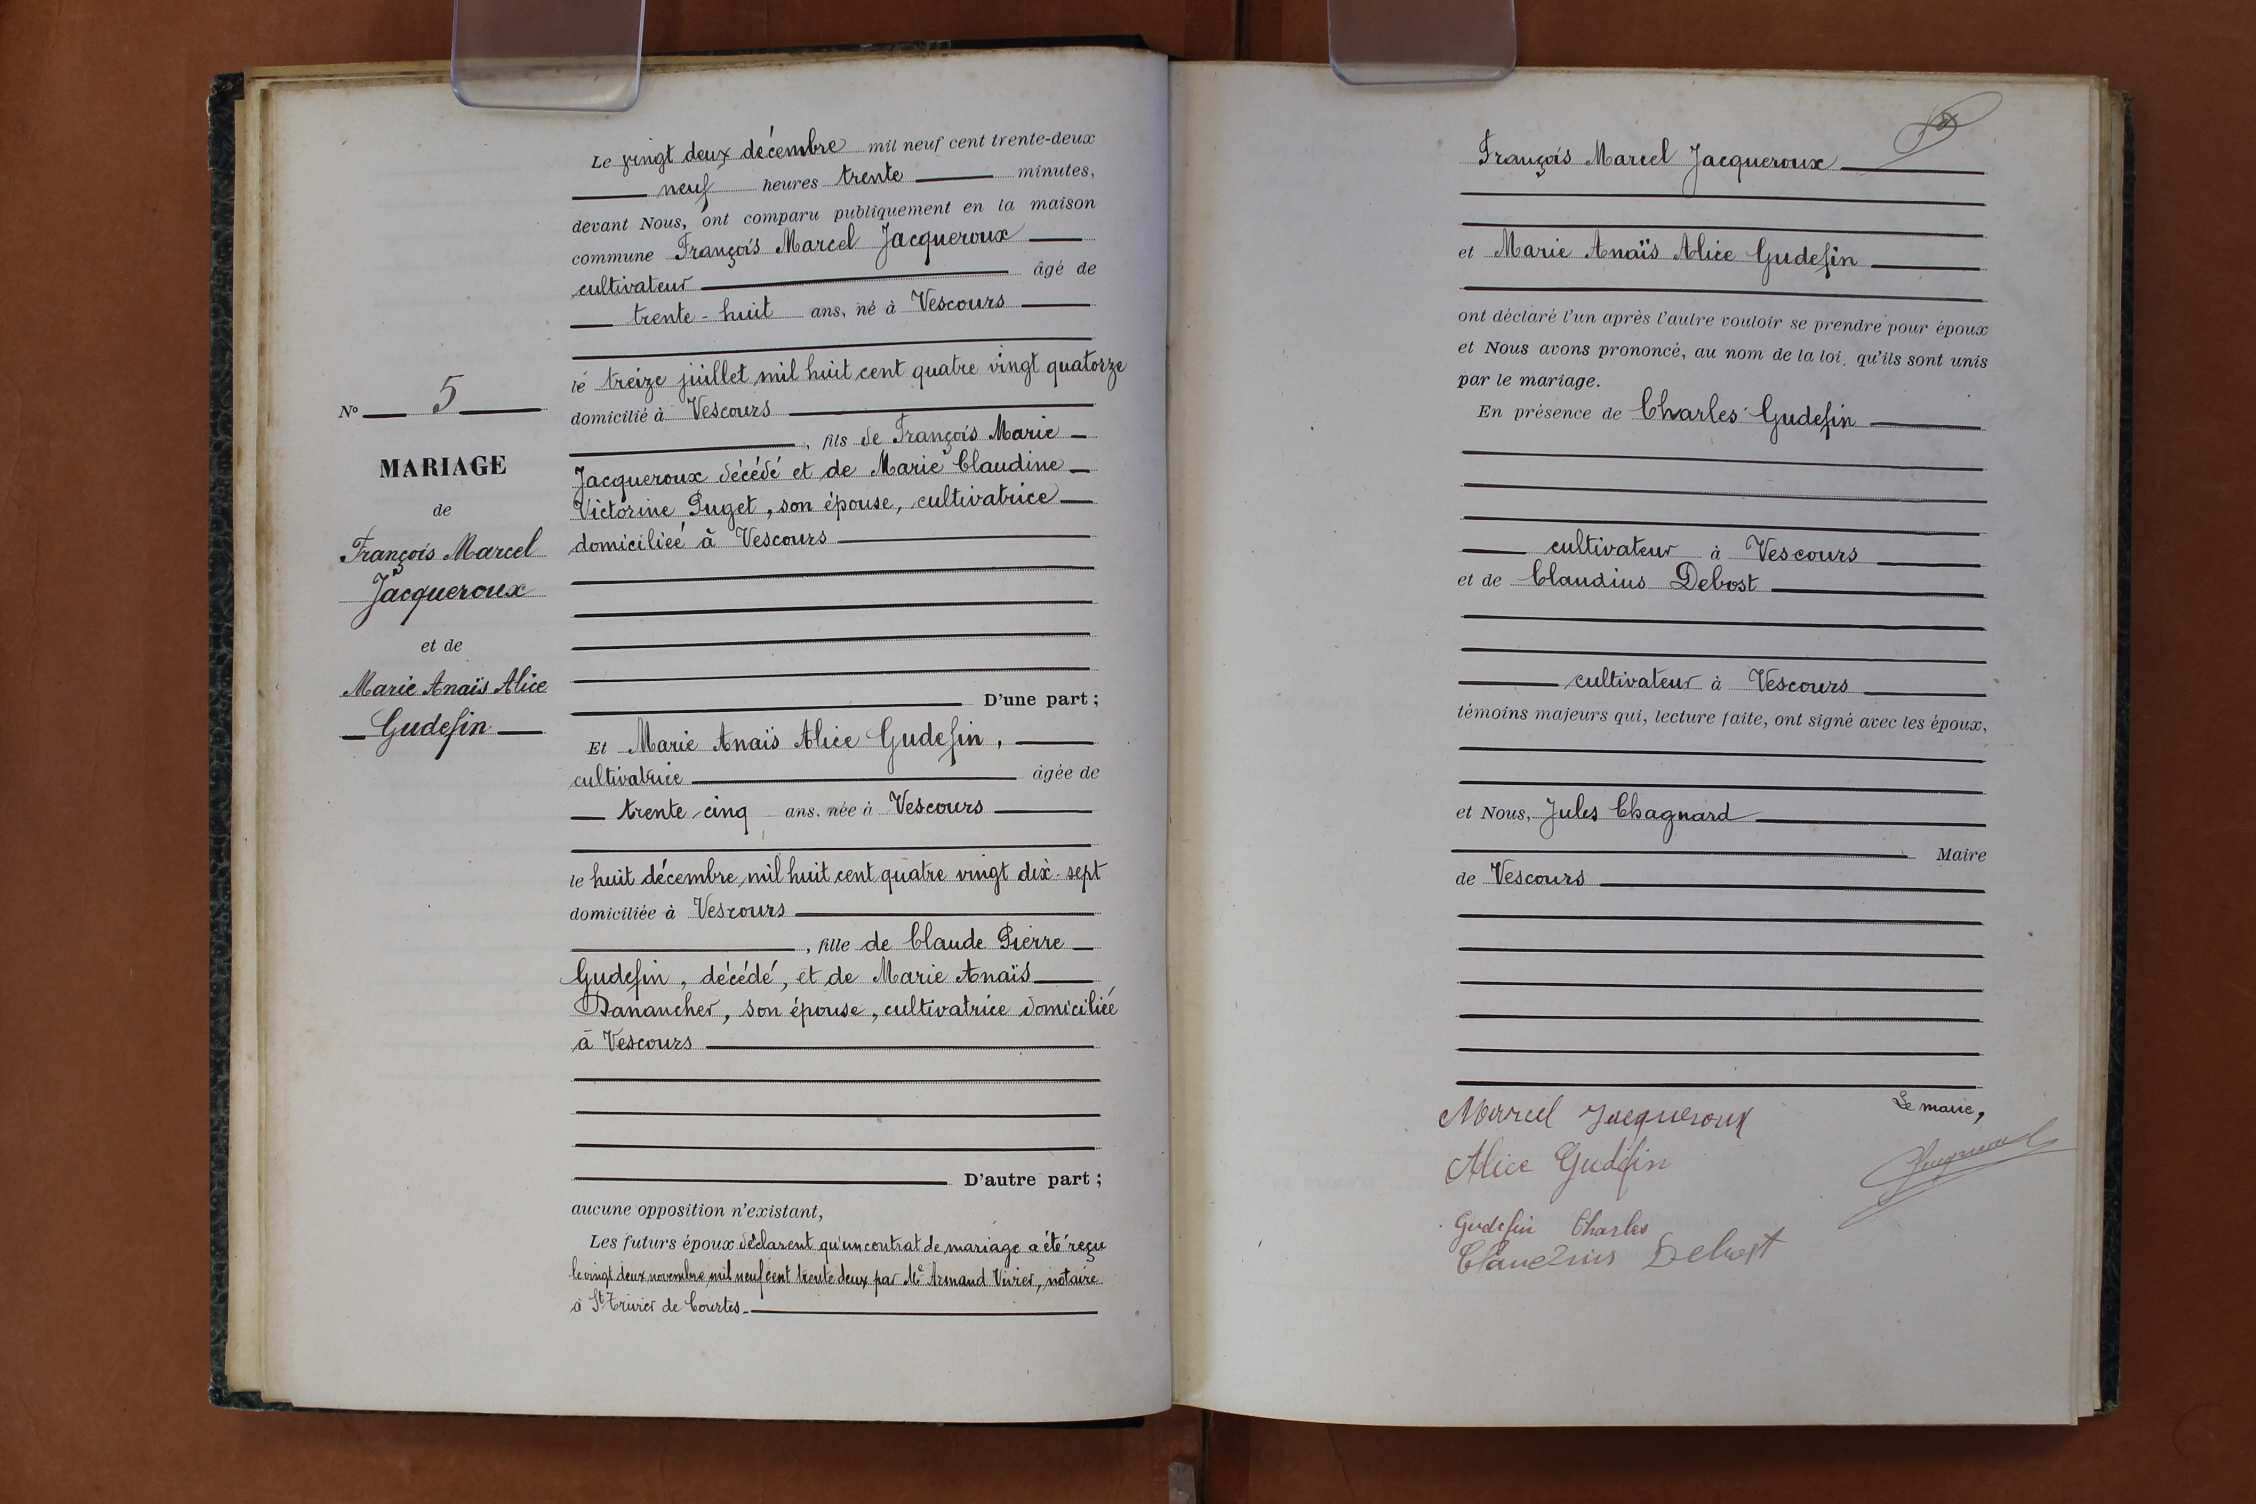 Le vingt deux décembre mil neuf cent trente-deux
neuf heures trente minutes,
devant Nous, ont comparu publiquement en la maison
commune François Marcel Jacqueroux
cultivateur âgé de
trente-huit ans, né à Vescours
le treize juillet mil huit cent quatre vingt quatorze
domicilié à Vescours
, fils de François Marie
Jacqueroux décédé et de Marie Claudine
Victorine Puget, son épouse, cultivatrice
domiciliée à Vescours
D'une part ;
Et Marie Anaïs Alice Gudefin,
cultivatrice âgée de
trente cinq ans, née à Vescours
le huit décembre mil huit cent quatre vingt dix-sept
domiciliée à Vescours
, fille de Claude Pierre
Gudefin, décédé, et de Marie Anaïs
Danancher, son épouse, cultivatrice domiciliée
à Vescours
D'autre part ;
aucune opposition n'existant,
Les futurs époux déclarent qu'un contrat de mariage a été reçu
le vingt deux novembre mil neuf cent trente deux par Me Armand Vivier, notaire
à St Trivier de Courtes
No 5
MARIAGE
de
François Marcel
Jacqueroux
et de
Marie Anaïs Alice
Gudefin
François Marcel Jacqueroux
et Marie Anaïs Alice Gudefin
ont déclaré l'un après l'autre vouloir se prendre pour époux
et Nous avons prononcé, au nom de la loi, qu'ils sont unis
par le mariage.
En présence de Charles Gudefin
cultivateur à Vescours
et de Claudius Debost
cultivateur à Vescours
témoins majeurs qui, lecture faite, ont signé avec les époux,
et Nous, Jules Chagnard
Maire
de Vescours
Le maire,
Marcel Jacqueroux
Alice Gudefin
Chagnard
Gudefin Charles
Claudius Debost